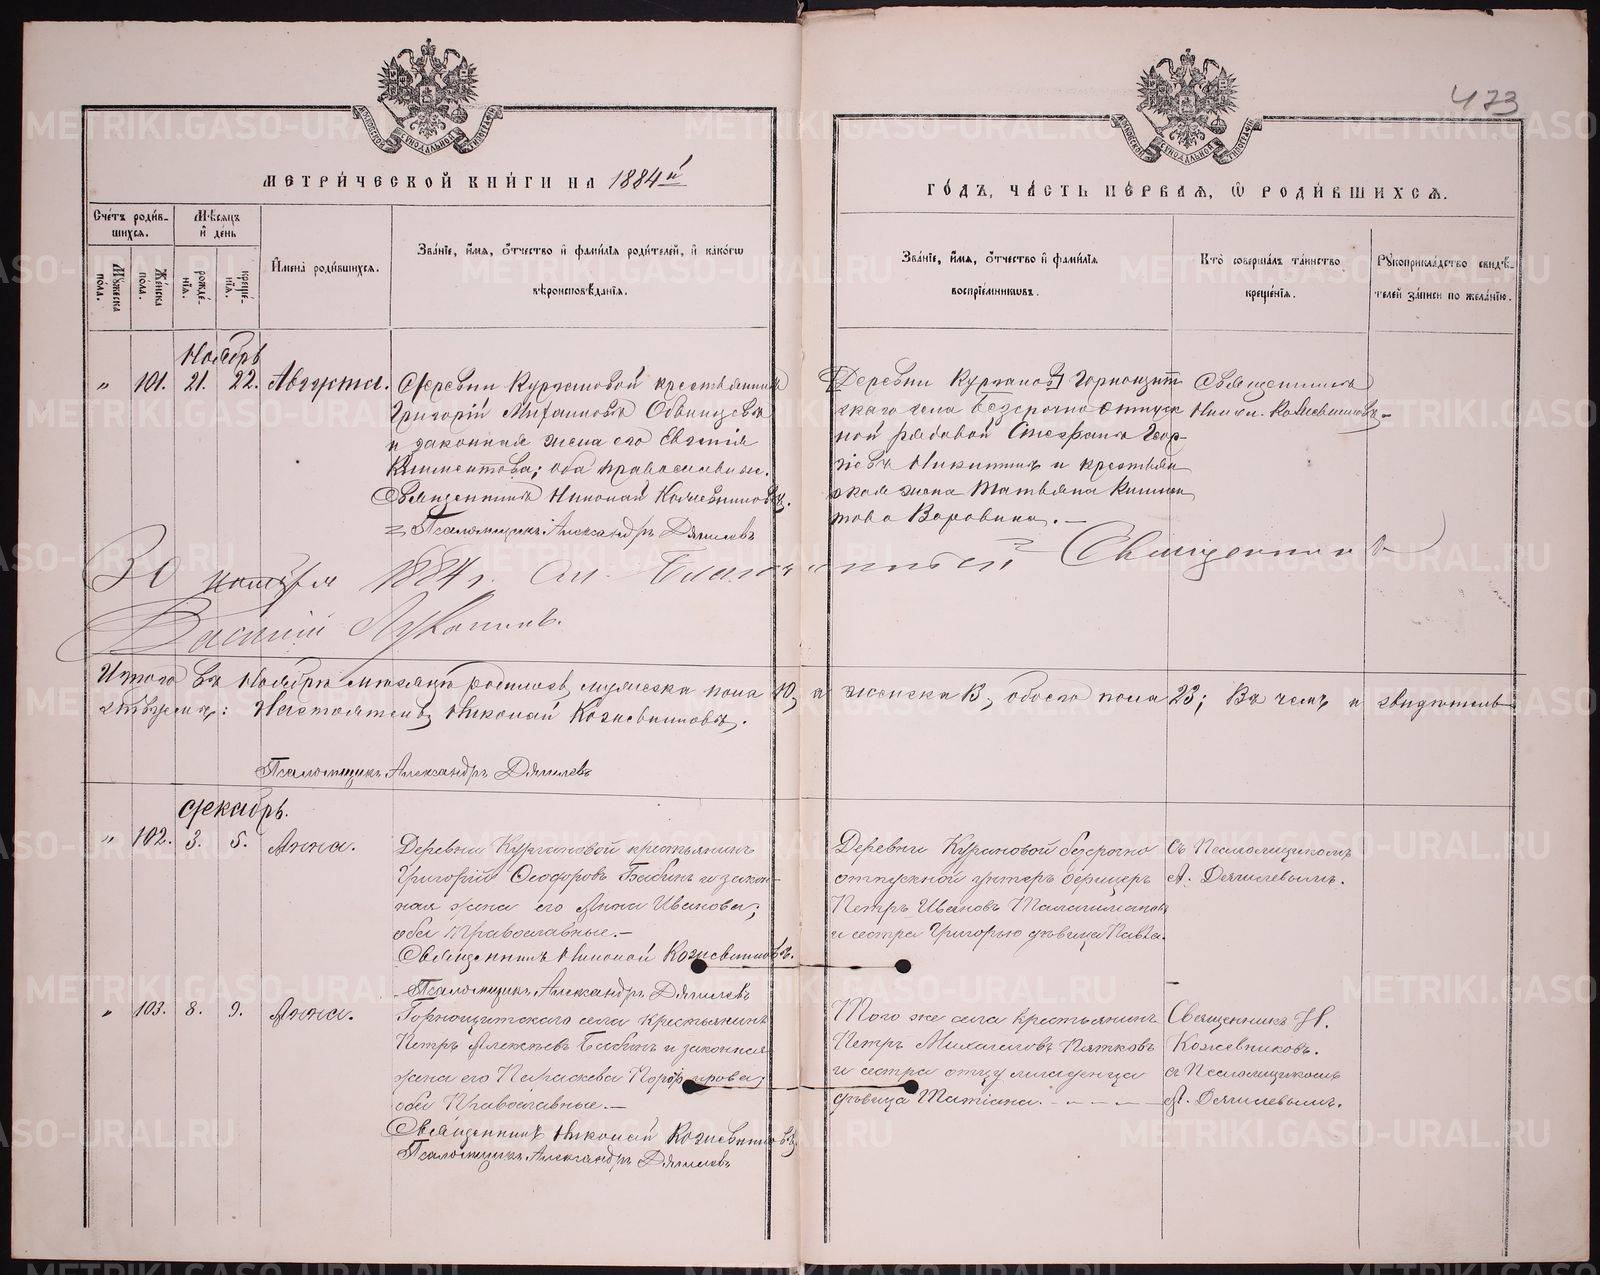 473
МЕТРИ́ЧЕСКОЙ КНИ́ГИ НА 1884й
ГО́ДЪ, ЧА́СТЬ ПЕ́РВАЯ, Ѡ҆ РОДИ́ВШИХСѦ.
Сче́тъ роди́вшихсѧ.
Мѣ́сѧцъ и҆ де́нь
Мꙋ́жеска пола.
Же́нска пола.
рожде́нїѧ.
креще́нїѧ.
И҆мена̀ роди́вшихсѧ.
Зва́нїе, и҆́мѧ, ѻ҆́тчество и҆ фами́лїѧ роди́телей, и҆ како́гѡ
вѣроисповѣ́данїѧ.
Зва́нїе, и҆́мѧ, ѻ҆́тчество и҆ фами́лїѧ
воспрїе́мникѡвъ.
Кто̀ соверша́лъ та́инство
креще́нїѧ.
Рꙋкоприкла́дство свидѣ́телей за́писи по жела́нїю.
Ноябрь
" 101. 21. 22. Августа.
Деревни Кургановой крестьянинъ
Григорій Михаиловъ Обвинцевъ
и законная жена его Евгенія
Климентова; оба православные.
Священникъ Николай Кожевниковъ.
Псаломщикъ Александръ Дягилевъ
Деревни Курганов. Горнощит
скаго села безсрочно отпуск
ной рядовой Стефанъ Геор-
гіевъ Никитинъ и крестьян
ская жена Татьяна Климен
това Воровина.
Священникъ
Никол. Кожевниковъ
30 ноября 1884 г. Благочинный Священникъ
Василій Луканинъ.
Итого въ Ноябрѣ мѣсяцѣ родилось, мужеска пола 10, а женска 13, обоего пола 23; Въ чемъ и свидѣтель
ствуемъ: Настоятель, Николай Кожевниковъ.
Псаломщикъ Александръ Дягилевъ
Декабрь.
" 102. 3. 5. Анна.
Деревни Кургановой крестьянинъ
Григорій Ѳеодоровъ Бабинъ и закон-
ная жена его Анна Иванова;
оба Православные.—
Священникъ Николай Кожевниковъ.
Псаломщикъ Александръ Дягилевъ
Деревни Кургановой безсрочно
отпускной унтеръ офицеръ
Петръ Ивановъ
и сестра Григорью дѣвица Павла.
Съ Псаломщикомъ
А. Дягилевымъ.
" 103. 8. 9. Анна.
Горнощитскаго села крестьянинъ
Петръ Алексѣевъ Бабинъ и законная
жена его Параскева Порфирова;
оба Православные.—
Священникъ Николай Кожевниковъ
Псаломщикъ Александръ Дягилевъ
Того же села крестьянинъ
Петръ Михаиловъ Пятковъ
и сестра отцу младенца
дѣвица Татіана.
Священникъ Н.
Кожевниковъ.
съ Псаломщикомъ
А. Дягилевымъ.